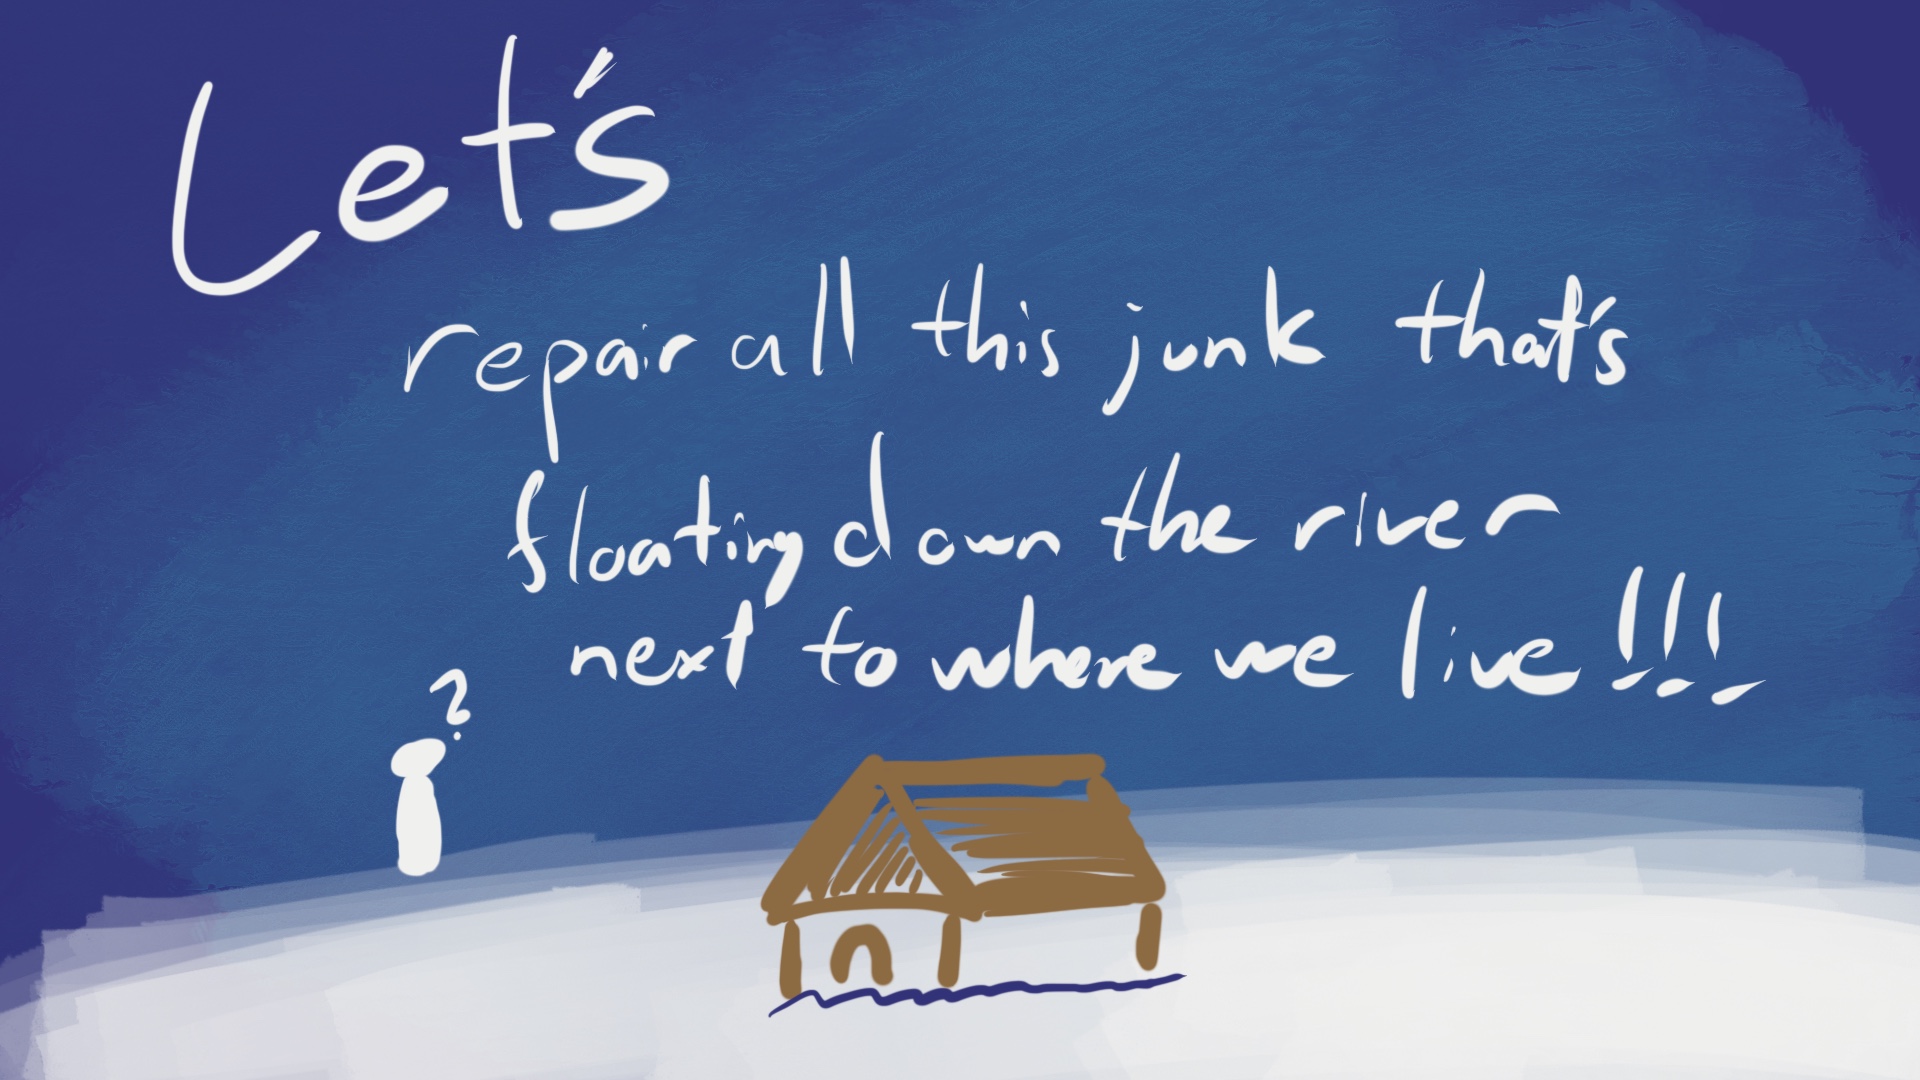 Let's
repair all this junk that's
floating down the river
next to where we live!!!
?